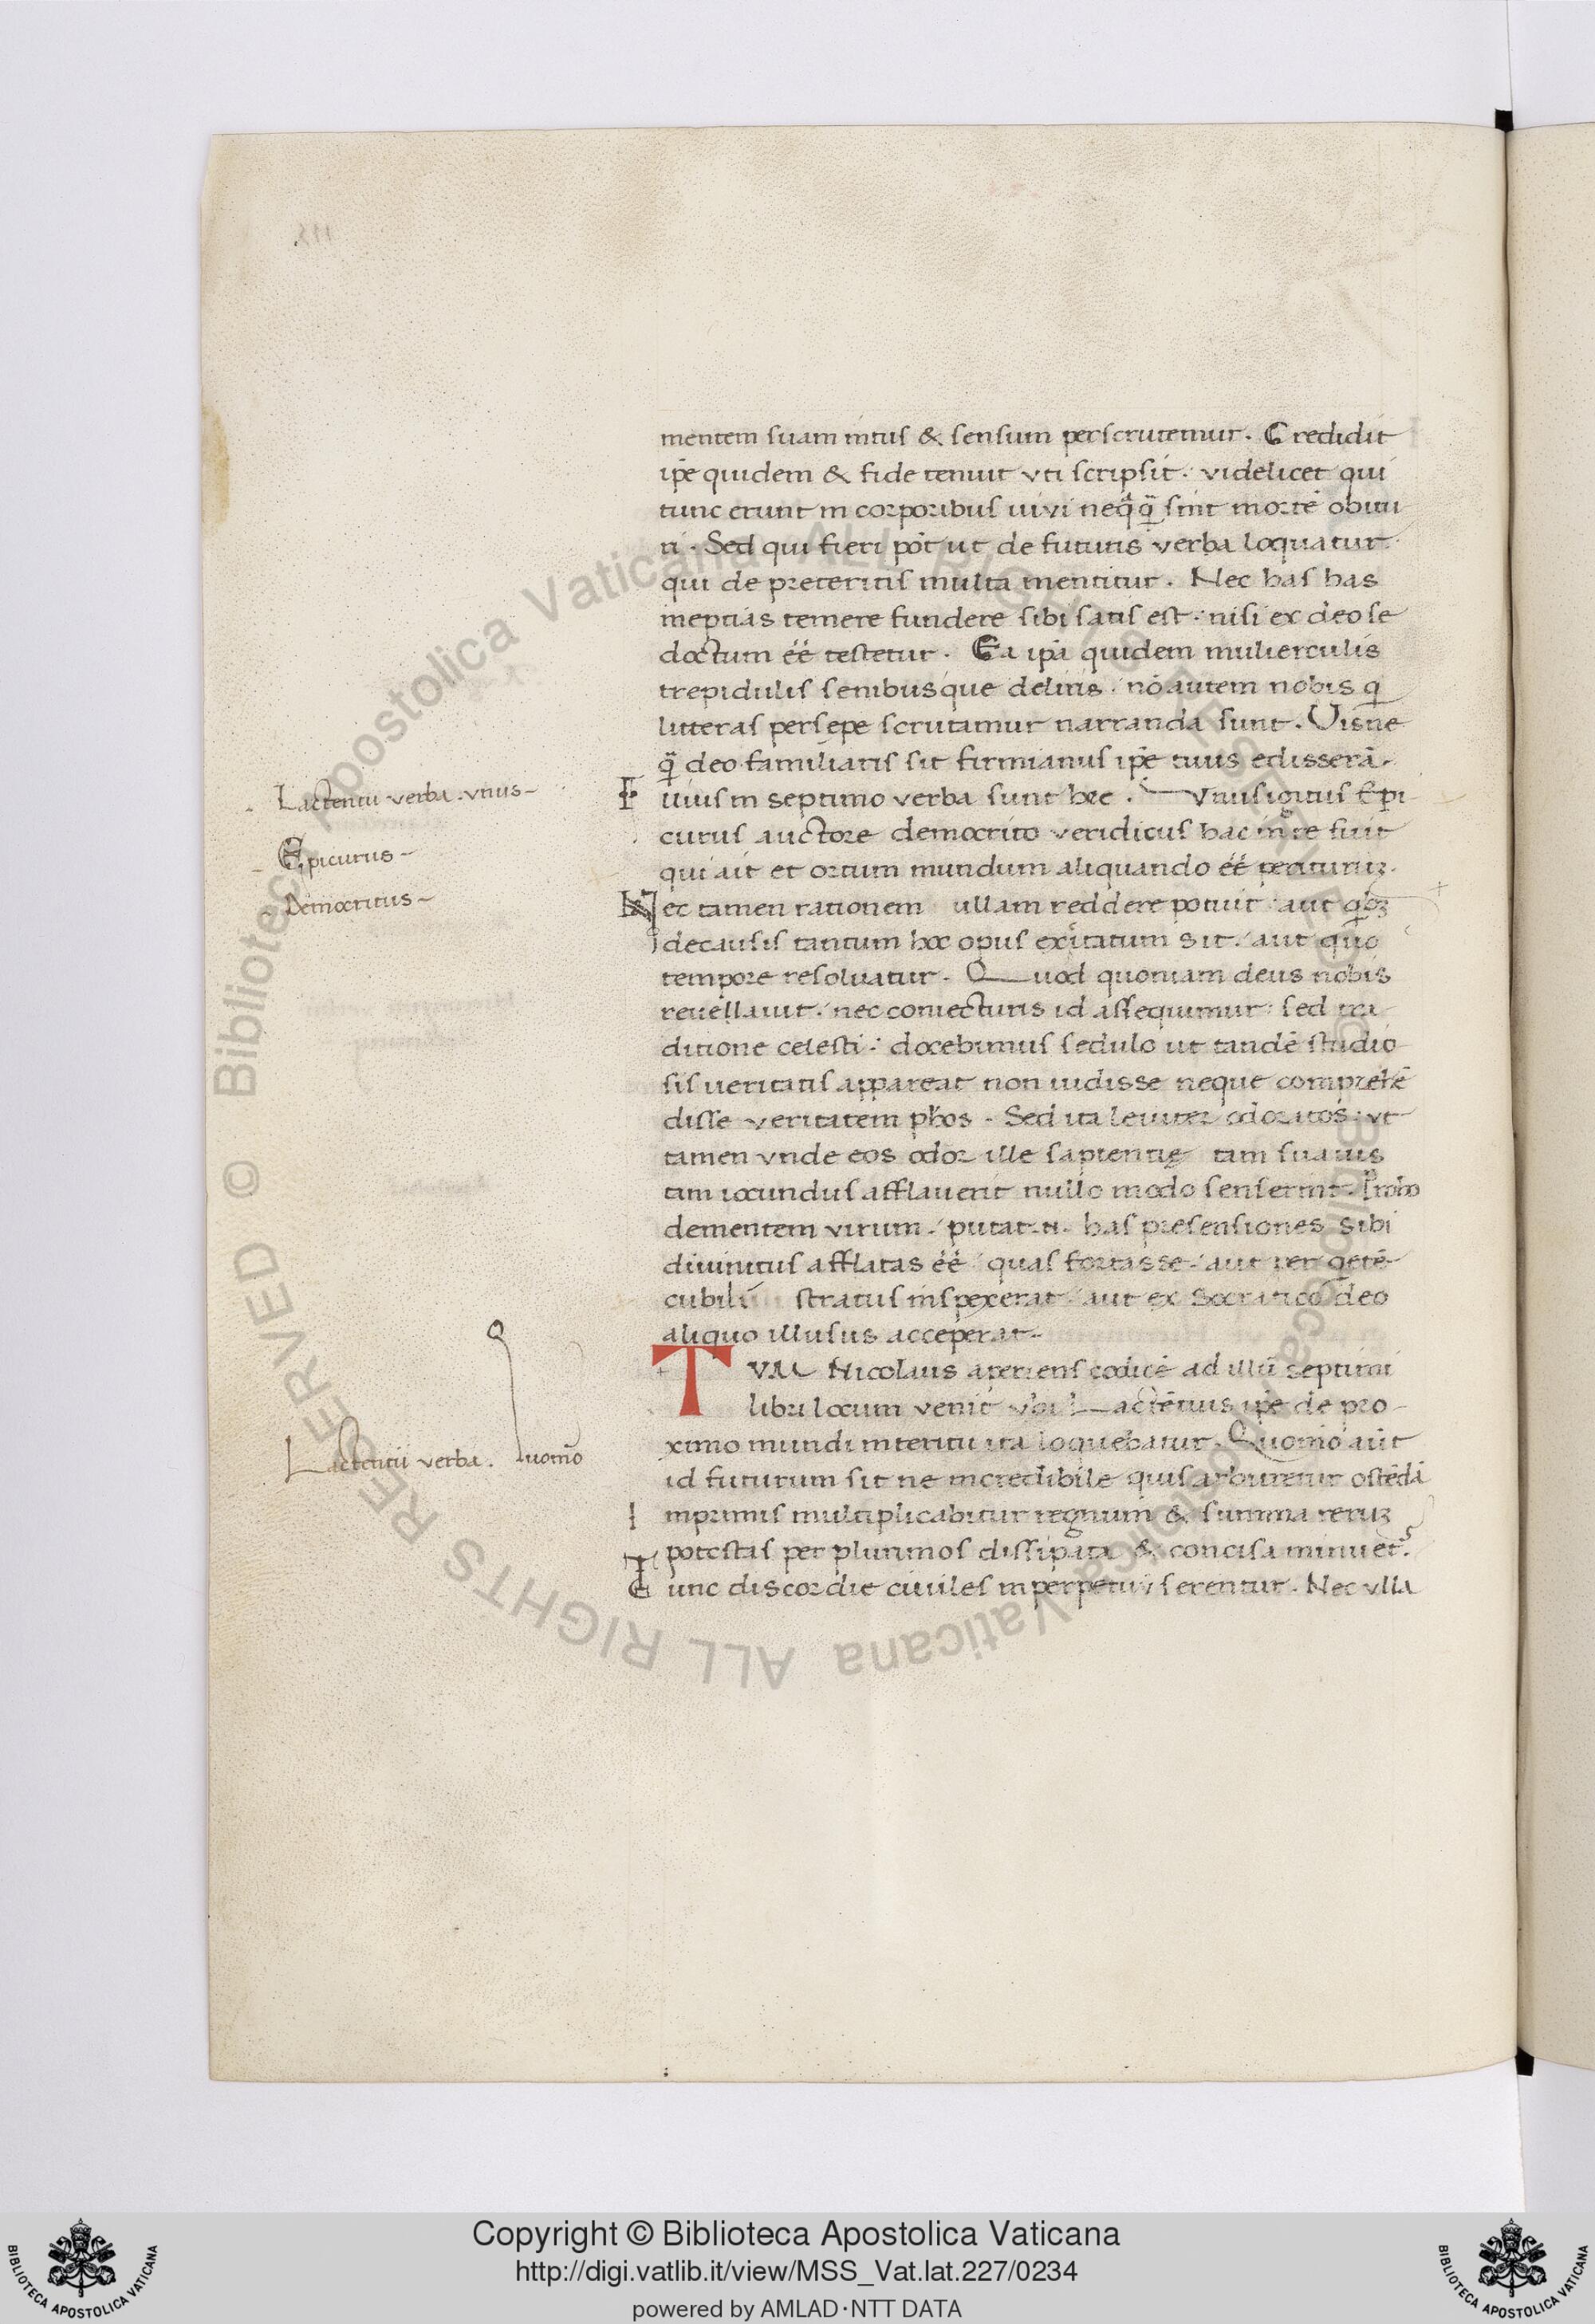 mentem suam intus & sensum perscrutemur. Credidit
ipē quidem & fide tenuit vti scripsit. videlicet qui
tunc erunt in corporibus uivi neq̃q̃ sint mortē obitu
ri. Sed qui fieri pōt ut de futuris verba loquatur
qui de preteritis multa mentitur. Nec has has
ineptias temere fundere sibi satis est. nisi ex deo se
doctum ēē testetur. Ea ipā quidem mulierculis
trepidulis senibusque deliris. nō autem nobis q̃
litteras persepe scrutamur narranda sunt. Visne
q̃ deo familiaris sit firmianus ipē tuus edisserā.
Lactentii verba. vnus
uius in septimo verba sunt hec. Vnus igitus Epi
curus auctore democrito veridicus hac in re fuit
Epicurus
qui ait et ortum mundum aliquando ēē periturum.
Democritus
Nec tamen rationem ullam reddere potuit. aut qbꝫ
de causis tantum hoc opus excitatum sit. aut quo
tempore resoluatur. Quod quoniam deus nobis
reuellauit. nec coniecturis id assequimur: sed tra
ditione celesti: docebimus sedulo ut tandē studio
sis ueritatis appareat non uidisse neque comprehē
disse veritatem phos. Sed ita leuiter odoratos. vt
tamen vnde eos odor ille sapientię tam suauis
tam iocundus afflauerit nullo modo senserint. Proho
dementem virum. putat. n. has presensiones sibi
diuinitus afflatas ēē quas fortasse. aut per qetē
cubili stratus inspexerat. aut ex Socratico deo
aliquo illusus acceperat.
TVM Nicolaus aperiens codicē ad illū septimi
libri locum venit vbi Lactētius ipē de pro
ximo mundi interitu ita loquebatur. Quomō aūt
Lactentii verba. Quomō
id futurum sit ne incredibile quis arbitretur ostēdā
Inprimis multiplicabitur regnum & summa rerum
potestas per plurimos dissipata & concisa minuet.
Tunc discordie ciuiles in perpetuū serentur. Nec vlla
Biblioteca Apostolica Vaticana ALL RIGHTS RESERVED ©
Copyright © Biblioteca Apostolica Vaticana
http://digi.vatlib.it/view/MSS_Vat.lat.227/0234
powered by AMLAD·NTT DATA
BIBLIOTECA APOSTOLICA VATICANA
BIBLIOTECA APOSTOLICA VATICANA